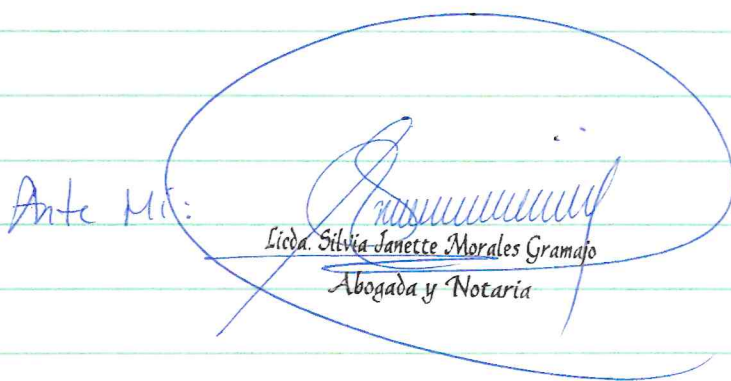 Ante Mí:
Licda. Silvia Janette Morales Gramajo
Abogada y Notaria